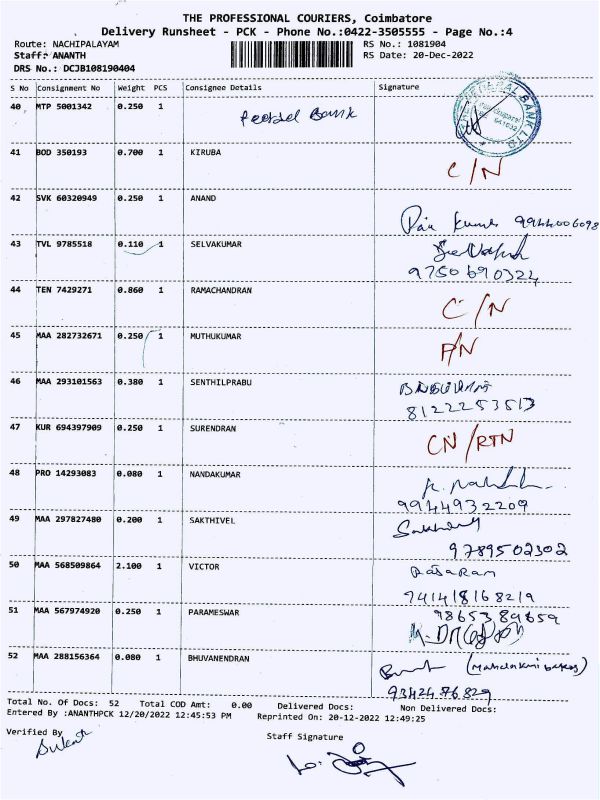 THE PROFESSIONAL COURIERS, Coimbatore
Delivery Runsheet - PCK - Phone No.:0422-3505555 - Page No.:4
Route: NACHIPALAYAM RS No.: 1081904
Staff: ANANTH RS Date: 20-Dec-2022
DRS No.: DCJB108190404
S No Consignment No Weight PCS Consignee Details Signature
40 MTP 5001342 0.250 1 Bank
41 BOD 350193 0.700 1 KIRUBA C/N
42 SVK 60320949 0.250 1 ANAND Kumar 9944006098
43 TVL 9785518 0.110 1 SELVAKUMAR
9750690324
44 TEN 7429271 0.860 1 RAMACHANDRAN C/N
45 MAA 282732671 0.250 1 MUTHUKUMAR
46 MAA 293101563 0.380 1 SENTHILPRABU
8122253513
47 KUR 694397909 0.250 1 SURENDRAN CN/RTN
48 PRO 14293083 0.080 1 NANDAKUMAR
9944932209
49 MAA 297827480 0.200 1 SAKTHIVEL
9789502302
50 MAA 568509864 2.100 1 VICTOR Rajaram
51 MAA 567974920 0.250 1 PARAMESWAR
52 MAA 288156364 0.080 1 BHUVANENDRAN
9342476829
Total No. Of Docs: 52 Total COD Amt: 0.00 Delivered Docs: Non Delivered Docs:
Entered By :ANANTHPCK 12/20/2022 12:45:53 PM Reprinted On: 20-12-2022 12:49:25
Verified By Staff Signature